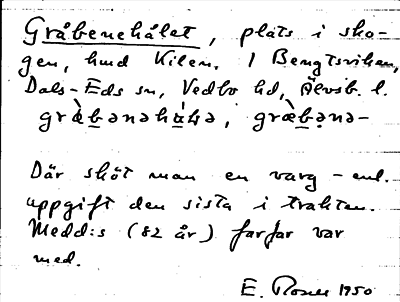 Gråbenehålet, plats i sko-
gen, hmd Kilen. I Bengtsviken,
Dals-Eds sn, Vedbo hd, Älvsb. l.
Där sköt man en varg - enl.
uppgift den sista i trakten.
Medd:s (82 år) farfar var
med.
E. 1950